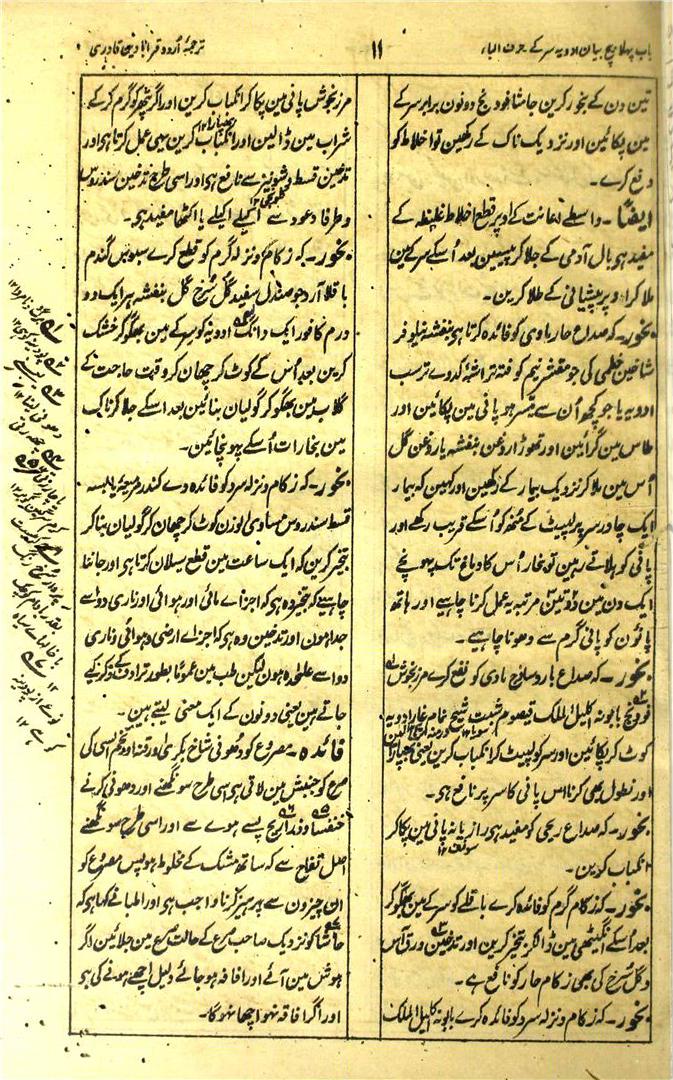 باب پہلا بیچ بیان ادویہ سر کے حرف الباء
۱۱
ترجمۂ اُردو قرابادین قادری
تین دن کے بخور کرین حاشا فودنج دونون برابر سرکے
مین پکائین اور نزدیک ناک کے رکھین تو اخلاط کو
دفع کرے۔
ایضًا۔ واسطے اعانت کے اوپر قطع اخلاط غلیظہ کے
مفید ہو بال آدمی کے جلا کر پیسین بعد اُسکے سرکے مین
ملا کر اوپر پیشانی کے طلا کرین۔
بخور۔ کہ صداع حار مادی کو فائدہ کرتا ہی بنفشہ نیلوفر
شاخین خطمی کی جو مقشر نیم کوفتہ تراشۂ کدوے تر سب
ادویہ یا جو کچھ اُن سے میسر ہو پانی مین پکائین اور
طاس مین گرائین اور تھوڑا روغن بنفشہ یا روغن گل
اُس مین ملا کر نزدیک بیمار کے رکھین اور کہین کہ بیمار
ایک چادر سر پر لپیٹ کے منھ کو اُسکے قریب رکھے اور
پانی کو ہلاتے رہین تو بخار اُس کا دماغ تک پہونچے
ایک دن مین دو تین مرتبہ یہ عمل کرنا چاہیے اور ہاتھ
پانوُن کو پانی گرم سے دھونا چاہیے۔
بخور۔ کہ صداع بارد ساذج مادی کو نفع کرے مرزنجوش
فودنج بابونہ اکلیل الملک قیصوم شبت شیح تمام غار ادویہ
کوٹ کر پکائین اور سر کو لپیٹ کر انکباب کرین یعنی بھپارا لین
اور نطول بھی کرنا اس پانی کا سر پر نافع ہی۔
بخور۔ کہ صداع ریحی کو مفید ہو رازیانہ پانی مین پکا کر
انکباب کرین۔
بخور۔ کہ زکام گرم کو فائدہ کرے باقلے کو سرکے مین بھگو کر
بعد اُسکے انگیٹھی مین ڈالکر تبخیر کرین اور تدخین ورق آس
و گل سُرخ کی بھی زکام حار کو نافع ہے۔
بخور۔ کہ زکام و نزلہ سرد کو فائدہ کرے بابونہ اکلیل الملک
مرزنجوش پانی مین پکا کر انکباب کرین اور اگر پتھر کو گرم کر کے
شراب مین ڈالین اور انکباب کرین یہی عمل کرتا ہی اور
تدخین قسط و شونیز سے نافع ہی اور اسی طرح تدخین سندروس
و طرفا و عود سے اکیلے اکیلے یا اکٹھا مفید ہی۔
بخور۔ کہ زکام و نزلہ گرم کو قطع کرے سبوس گندم
باقلا آرد جو صندل سفید گل سُرخ گل بنفشہ ہر ایک دو
درم کافور ایک دانگ ادویہ کو سرکے مین بھگو کر خشک
کرین بعد اُس کے کوٹ کر چھان کر وقت حاجت کے
گلاب مین بھگو کر گولیان بنائین بعد اسکے جلا کر ناک
مین بخارات اُسکے پہونچائین۔
بخور۔ کہ زکام و نزلہ سرد کو فائدہ دے کندر
قسط سندروس مساوی الوزن کوٹ کر چھان کر گولیان بنا کر
تبخیر کرین کہ ایک ساعت مین قطع سیلان کرتا ہی اور جاننا
چاہیے کہ تبخیر وہ ہی کہ اجزاے مائی اور ہوائی اور ناری دوا سے
جدا ہون اور تدخین وہ ہی کہ اجزاے ارضی و ہوائی و ناری
دوا سے علٰحدہ ہون لیکن طب مین عمومًا بطور ترادف کے ذکر کیے
جاتے ہین یعنی دونون کے ایک معنی لیتے ہین۔
فائدہ۔ مصروع کو دھونی شاخ بکری اور
صرع کو جنبش مین لاتی ہی اسی طرح سونگھنے اور دھونی کرنے
خنفسا و ذراریح پسے ہوے سے اور اسی طرح سونگھنے
اصل تفاح سے کہ ساتھ مشک کے مخلوط ہو پس مصروع کو
ان چیزون سے پرہیز کرنا واجب ہی اور اطبا نے کہا ہی کہ
حاشا کو نزدیک صاحب صرع کے حالت صرع مین جلائین اگر
ہوش مین آئے اور افاقہ ہو جائے دلیل اچھے ہونے کی ہی
اور اگر افاقہ نہو اچھا نہوگا۔